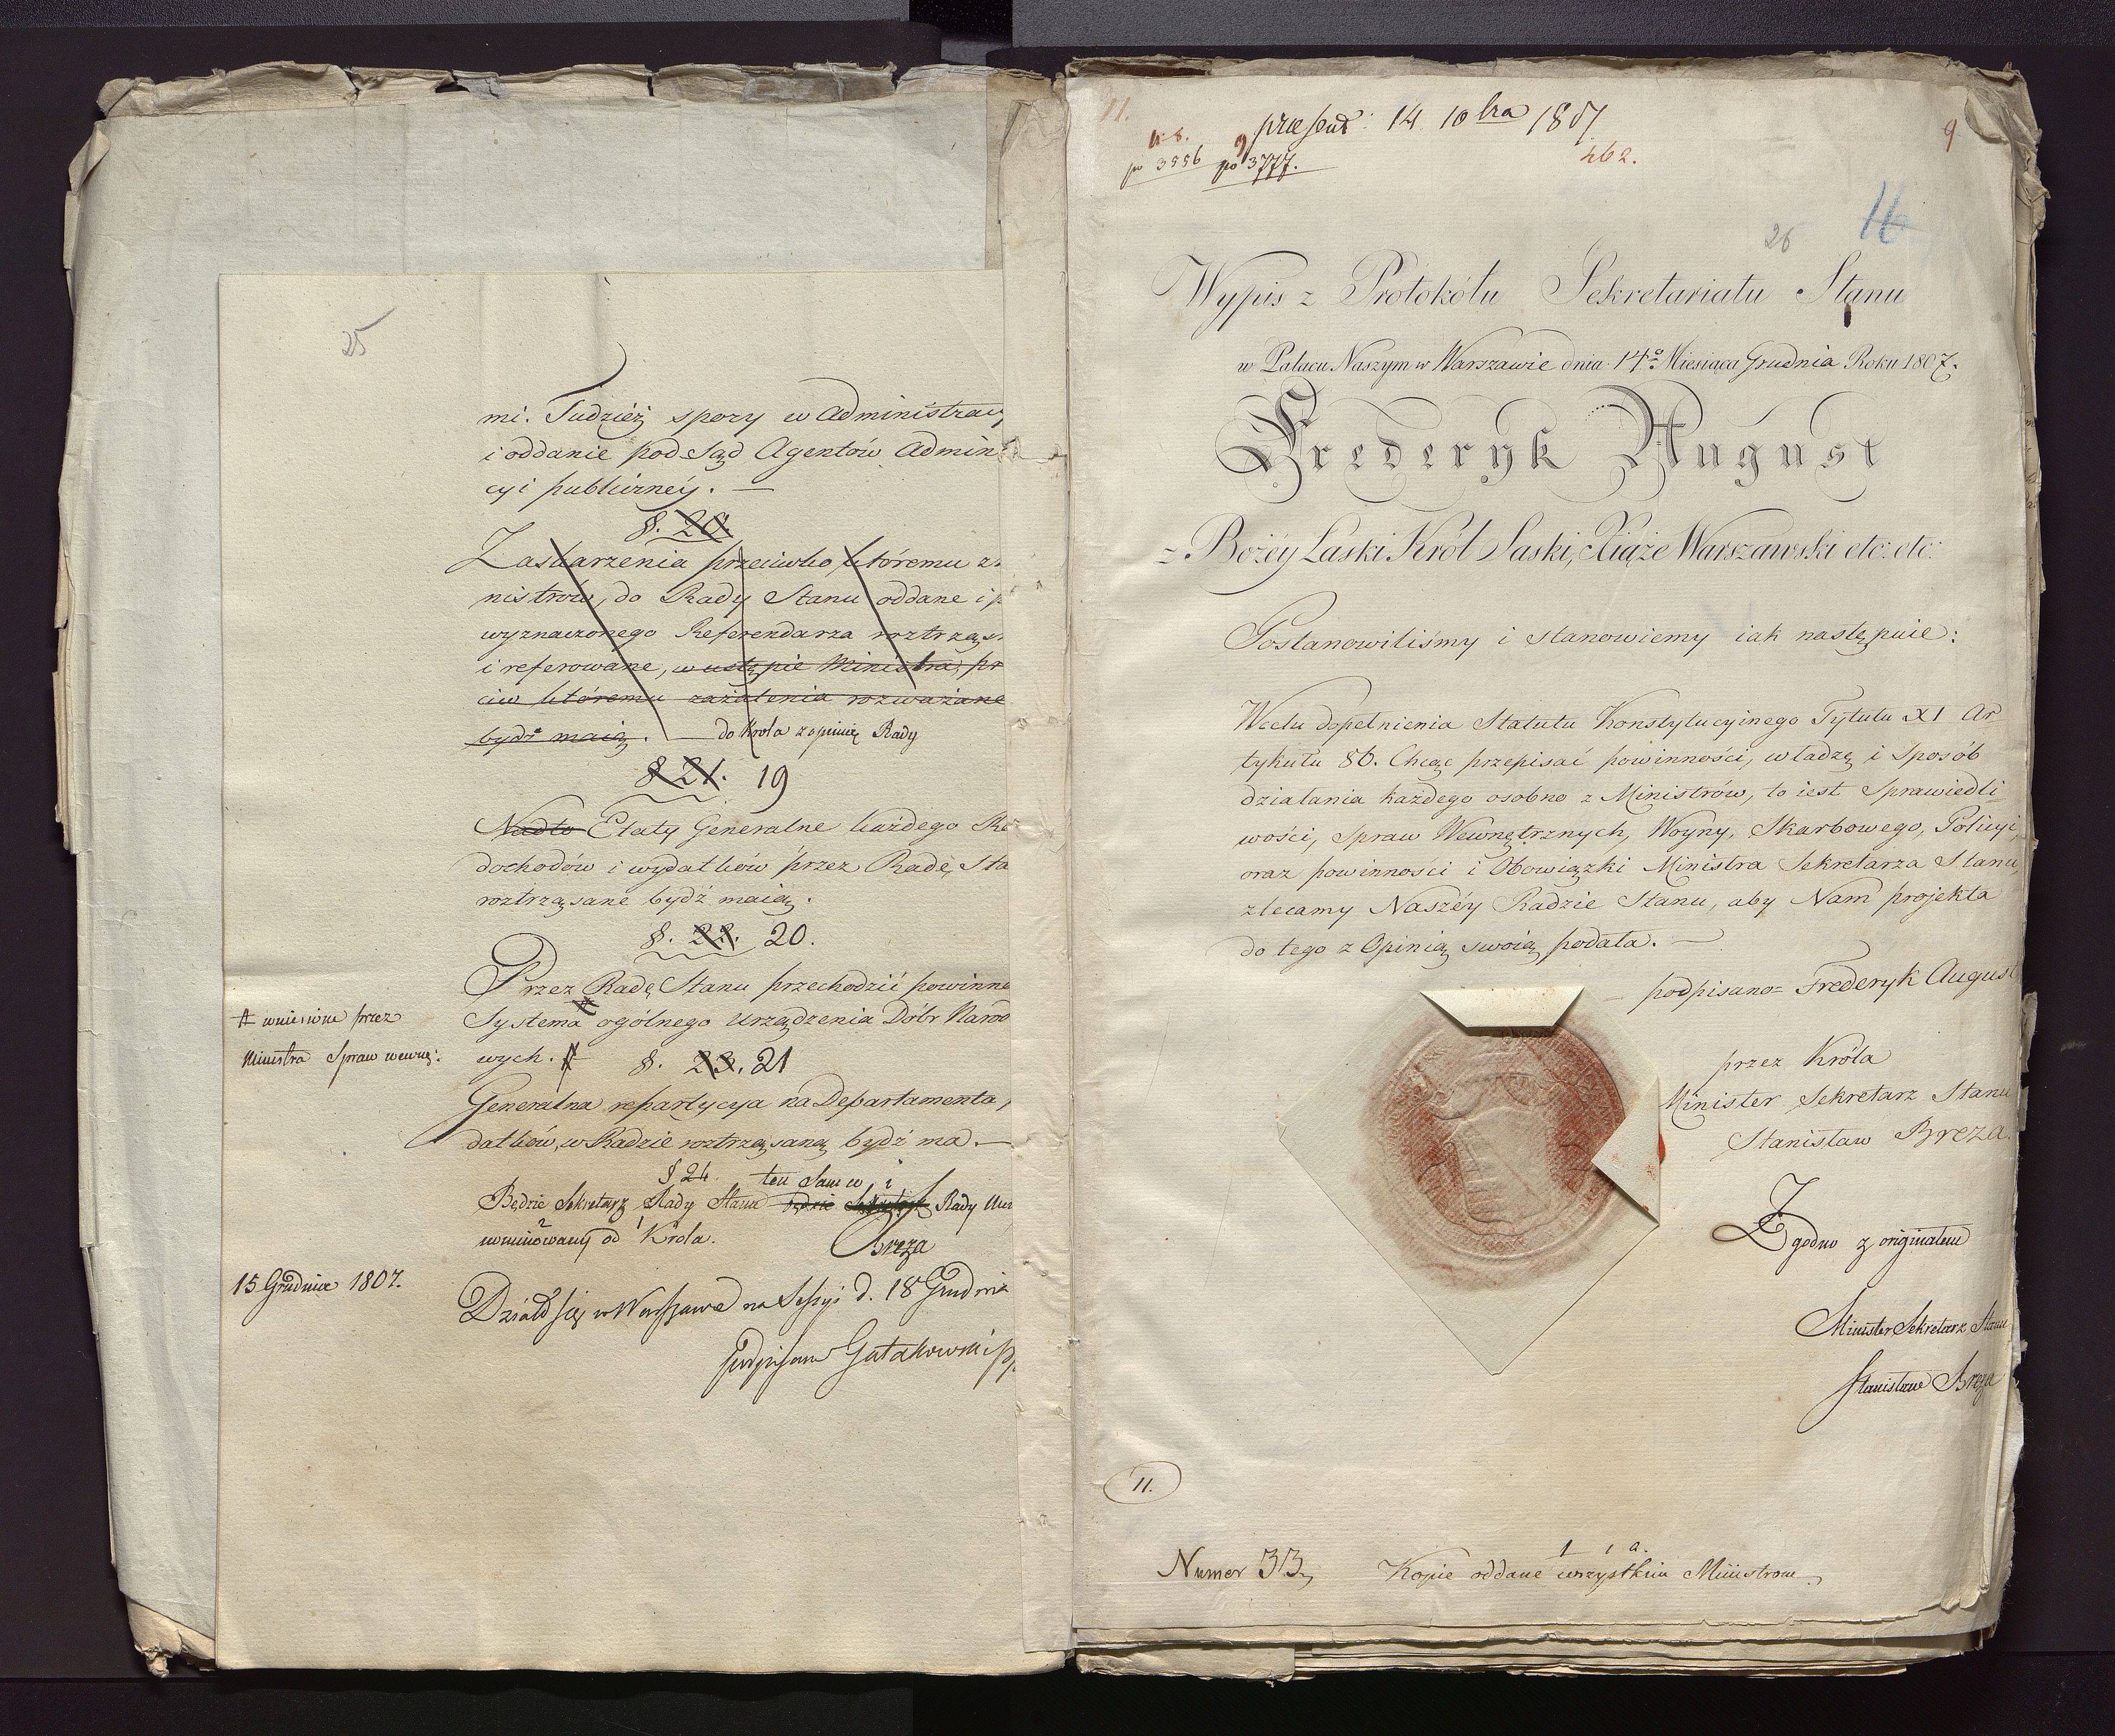 25
mi. Tudzież spory w Administracy
i oddanie pod Sąd Agentów Admini
cyi publiczney. —
§. 20.
Zaskarzenia przeciwko któremu z
nistrów, do Rady Stanu oddane i p
wyznaczonego Referendarza roztrząs
i referowane, w ustępie Ministra, pr
ciw któremu zażalenia rozważane
bydź maią. — do Króla z opinią Rady
§ 21. 19
Nadto Etaty Generalne każdego
dochodów i wydatków przez Radę Sta
roztrząsane bydź maią.
§. 22. 20.
Przez Radę Stanu przechodzić powinne
Systema ogólnego urządzenia Dóbr Naro
wych. §. 23. 21
wniesione przez
Ministra Spraw wewnę:
Generalna repartycya na Departamenta,
datków, w Radzie roztrząsaną bydź ma. —
§ 24. ten sam w i
Będzie Sekretarz Rady Stanu będzie Rady
nominowany od Króla.
Breza
15 Grudnia 1807.
Działo się w Warszawie na Sessyi d. 18 Grudnia
podpisano Gutakowski
11.
praesent: 14 10bra 1807
48. 9
po 3556 po 3777.
462.
9
26
16
Wypis z Protokółu Sekretariatu Stanu
w Pałacu Naszym w Warszawie dnia 14o Miesiąca Grudnia Roku 1807.
Frederyk August
z Bożéy Łaski Król Saski, Xiąże Warszawski etc: etc:
Postanowiliśmy i stanowiemy iak następuie:
Wcelu dopełnienia Statutu Konstytucyinego Tytułu XI Ar
tykułu 86. Chcąc przepisać powinności, władzę i Sposób
działania każdego osobno z Ministrów, to iest Sprawiedli
wości, Spraw Wewnętrznych, Woyny, Skarbowego, Policyi,
oraz powinności i Obowiązki Ministra Sekretarza Stanu,
zlecamy Naszéy Radzie Stanu, aby Nam projekta
do tego z Opinią swoią podała. —
podpisano= Frederyk August
przez Króla
Minister Sekretarz Stanu
Stanisław Breza.
Zgodno z originałem
Minister Sekretarz Stanu
Stanisław Breza
11.
Numer 33,
Kopie oddane wszystkim Ministrom,